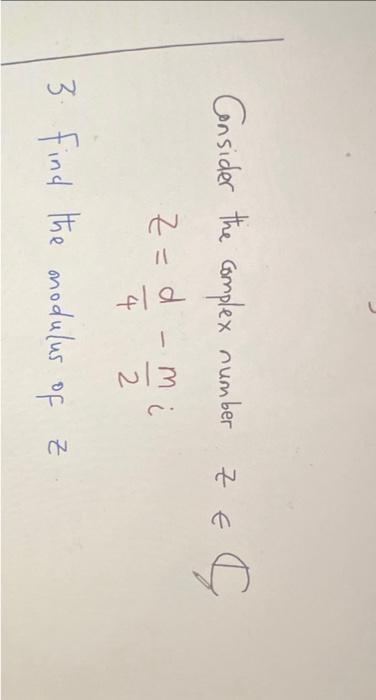 Consider the complex number z ∈ ℂ
z = d/4 - m/2 i
3. find the modulus of z